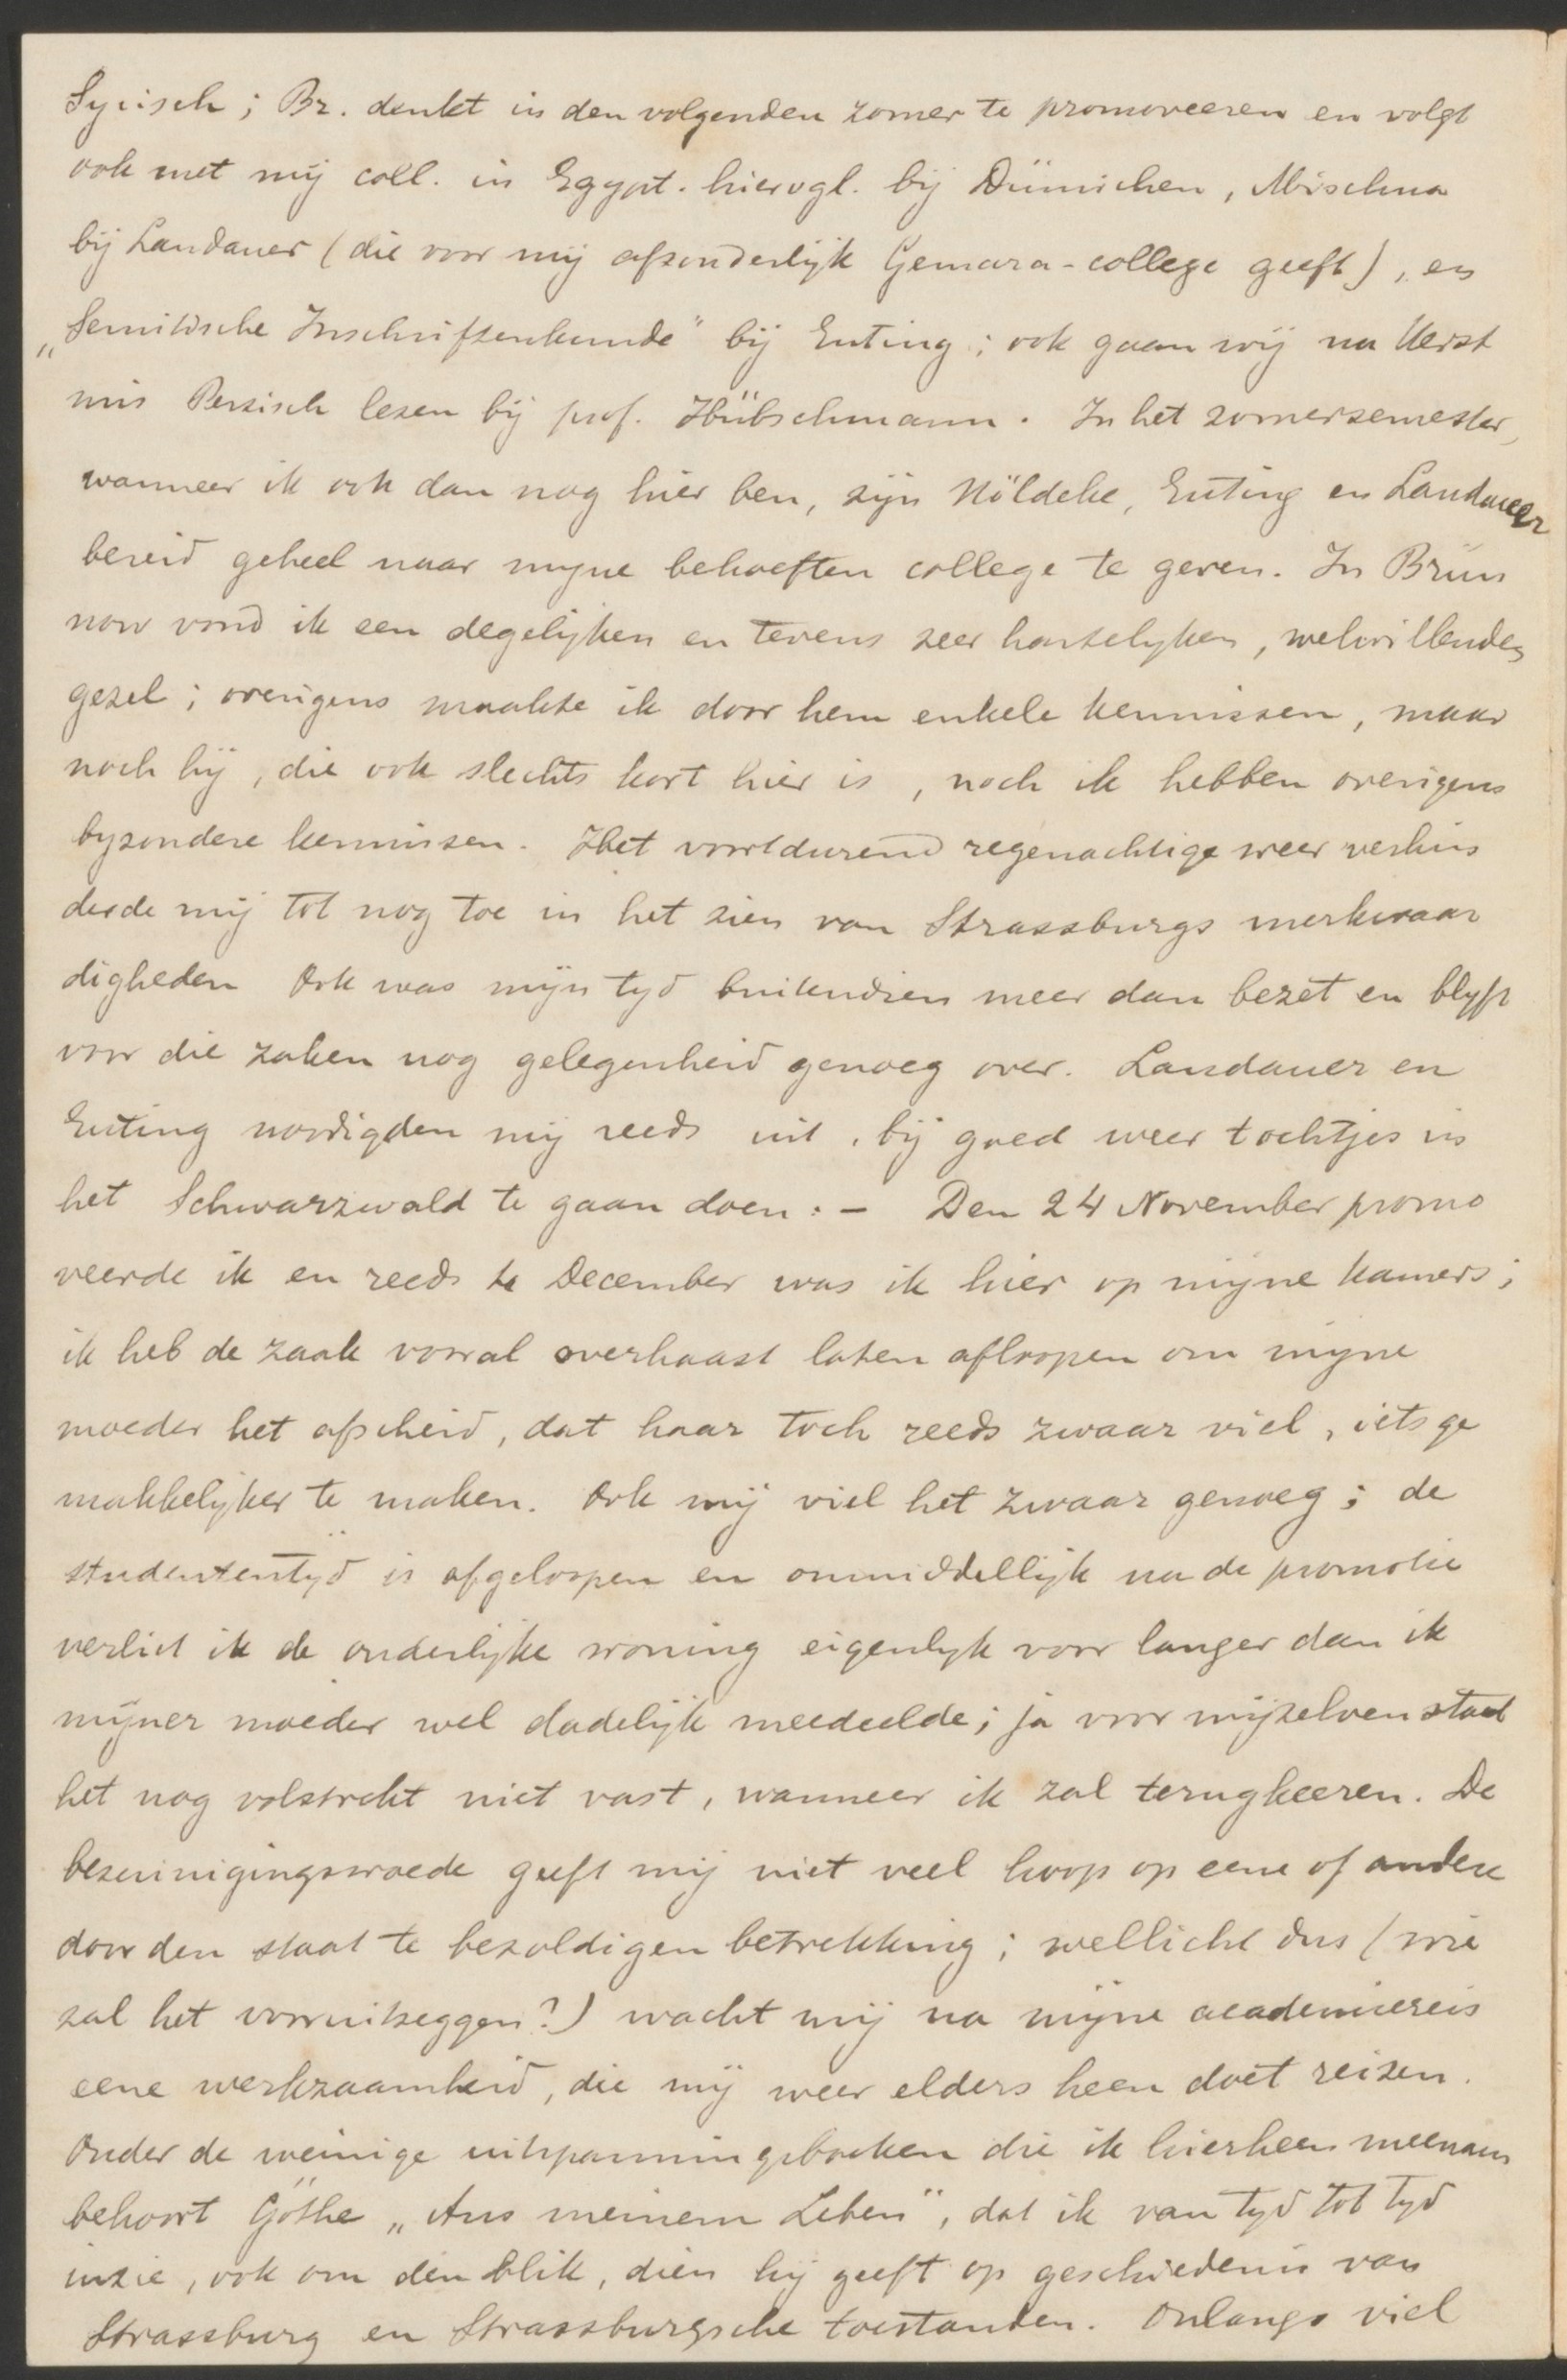 Syrisch; Br. denkt in den volgenden zomer te promoveeren en volgt
ook met mij coll. in Egypt. hierogl. bij Dümichen, Mischna
bij Landauer (die voor mij afzonderlijk Gemara-college geeft), en
„Semitische Inschriftenkunde" bij Euting; ook gaan wij na Kerst
mis Perzisch lezen bij prof. Hübschmann. In het zomersemester,
wanneer ik ook dan nog hier ben, zijn Nöldeke, Euting en Landauer
bereid geheel naar mijne behoeften college te geven. In Brün
now vond ik een degelijken en tevens zeer hartelijken, welwillenden
gezel; overigens maakte ik door hem enkele kennissen, maar
noch hij, die ook slechts kort hier is, noch ik hebben overigens
byzondere kennissen. Het voortdurend regenachtige weer verhin
derde mij tot nog toe in het zien van Strassburgs merkwaar
digheden Ook was mijn tyd buitendien meer dan bezet en blyft
voor die zaken nog gelegenheid genoeg over. Landauer en
Euting noodigden mij reeds uit, bij goed weer tochtjes in
het Schwarzwald te gaan doen. – Den 24 November promo
veerde ik en reeds te December was ik hier op mijne kamers;
ik heb de zaak vooral overhaast laten afloopen om mijne
moeder het afscheid, dat haar toch reeds zwaar viel, iets ge
makkelijker te maken. Ook mij viel het zwaar genoeg; de
studententijd is afgeloopen en onmiddellijk na de promotie
verliet ik de ouderlijke woning eigenlyk voor langer dan ik
mijner moeder wel dadelijk meedeelde; ja voor mijzelven staat
het nog volstrekt niet vast, wanneer ik zal terugkeeren. De
bezuinigingswoede geeft mij niet veel hoop op eene of andere
door den staat te bezoldigen betrekking; wellicht dus (wie
zal het vooruitzeggen?) wacht mij na mijne academiereis
eene werkzaamheid, die mij weer elders heen doet reizen.
Onder de weinige uitspanningsboeken die ik hierheen meenam
behoort Göthe „Aus meinem Leben", dat ik van tyd tot tyd
inzie, ook om den blik, dien hij geeft op geschiedenis van
Strassburg en Strassburgsche toestanden. Onlangs viel